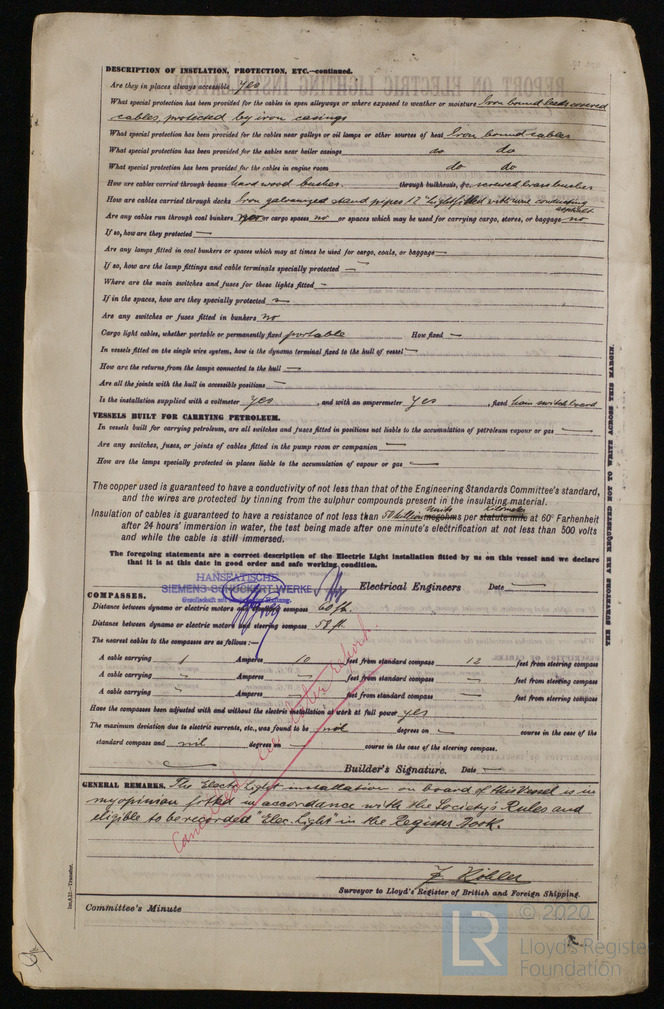 DESCRIPTION OF INSULATION, PROTECTION, ETC.—continued.
Are they in places always accessible yes
What special protection has been provided for the cables in open alleyways or where exposed to weather or moisture Iron bound lead covered
cables, protected by iron casings
What special protection has been provided for the cables near galleys or oil lamps or other sources of heat Iron bound cables
What special protection has been provided for the cables near boiler casings do do
What special protection has been provided for the cables in engine room do do
How are cables carried through beams hard wood bushes. through bulkheads, &c. screwed brass bushes
How are cables carried through decks Iron galvanized stand pipes 12" high filled with wire conducting
asphalt
Are any cables run through coal bunkers no or cargo spaces no or spaces which may be used for carrying cargo, stores, or baggage no
If so, how are they protected —
Are any lamps fitted in coal bunkers or spaces which may at times be used for cargo, coals, or baggage —
If so, how are the lamp fittings and cable terminals specially protected —
Where are the main switches and fuses for these lights fitted —
If in the spaces, how are they specially protected —
Are any switches or fuses fitted in bunkers no
Cargo light cables, whether portable or permanently fixed portable How fixed —
In vessels fitted on the single wire system, how is the dynamo terminal fixed to the hull of vessel —
How are the returns from the lamps connected to the hull —
Are all the joints with the hull in accessible positions —
Is the installation supplied with a voltmeter yes , and with an amperemeter yes , fixed main switchboard
VESSELS BUILT FOR CARRYING PETROLEUM.
In vessels built for carrying petroleum, are all switches and fuses fitted in positions not liable to the accumulation of petroleum vapour or gas —
Are any switches, fuses, or joints of cables fitted in the pump room or companion —
How are the lamps specially protected in places liable to the accumulation of vapour or gas —
The copper used is guaranteed to have a conductivity of not less than that of the Engineering Standards Committee's standard,
and the wires are protected by tinning from the sulphur compounds present in the insulating material.
Units kilometer
Insulation of cables is guaranteed to have a resistance of not less than 50 million megohms per statute mile at 60° Farhenheit
after 24 hours' immersion in water, the test being made after one minute's electrification at not less than 500 volts
and while the cable is still immersed.
The foregoing statements are a correct description of the Electric Light installation fitted by us on this vessel and we declare
that it is at this date in good order and safe working condition.
HANSEATISCHE
SIEMENS-SCHUCKERT WERKE
Gesellschaft mit beschränkter Haftung.
Electrical Engineers Date —
COMPASSES.
Distance between dynamo or electric motors and standard compass 60 ft.
Distance between dynamo or electric motors and steering compass 58 ft.
The nearest cables to the compasses are as follows:—
A cable carrying 1 Amperes 10 feet from standard compass 12 feet from steering compass
A cable carrying — Amperes — feet from standard compass — feet from steering compass
A cable carrying — Amperes — feet from standard compass — feet from steering compass
Have the compasses been adjusted with and without the electric installation at work at full power yes
The maximum deviation due to electric currents, etc., was found to be nil degrees on — course in the case of the
standard compass and nil degrees on — course in the case of the steering compass.
Builder's Signature. Date —
Cancelled see later report.
GENERAL REMARKS. The Electric Light installation on board of this Vessel is in
my opinion fitted in accordance with the Society's Rules and
eligible to be recorded "Elec. Light" in the Register Book.
F. Köhler
Surveyor to Lloyd's Register of British and Foreign Shipping.
Committee's Minute
THE SURVEYORS ARE REQUESTED NOT TO WRITE ACROSS THIS MARGIN.
LR
© 2020
Lloyd's Register
Foundation